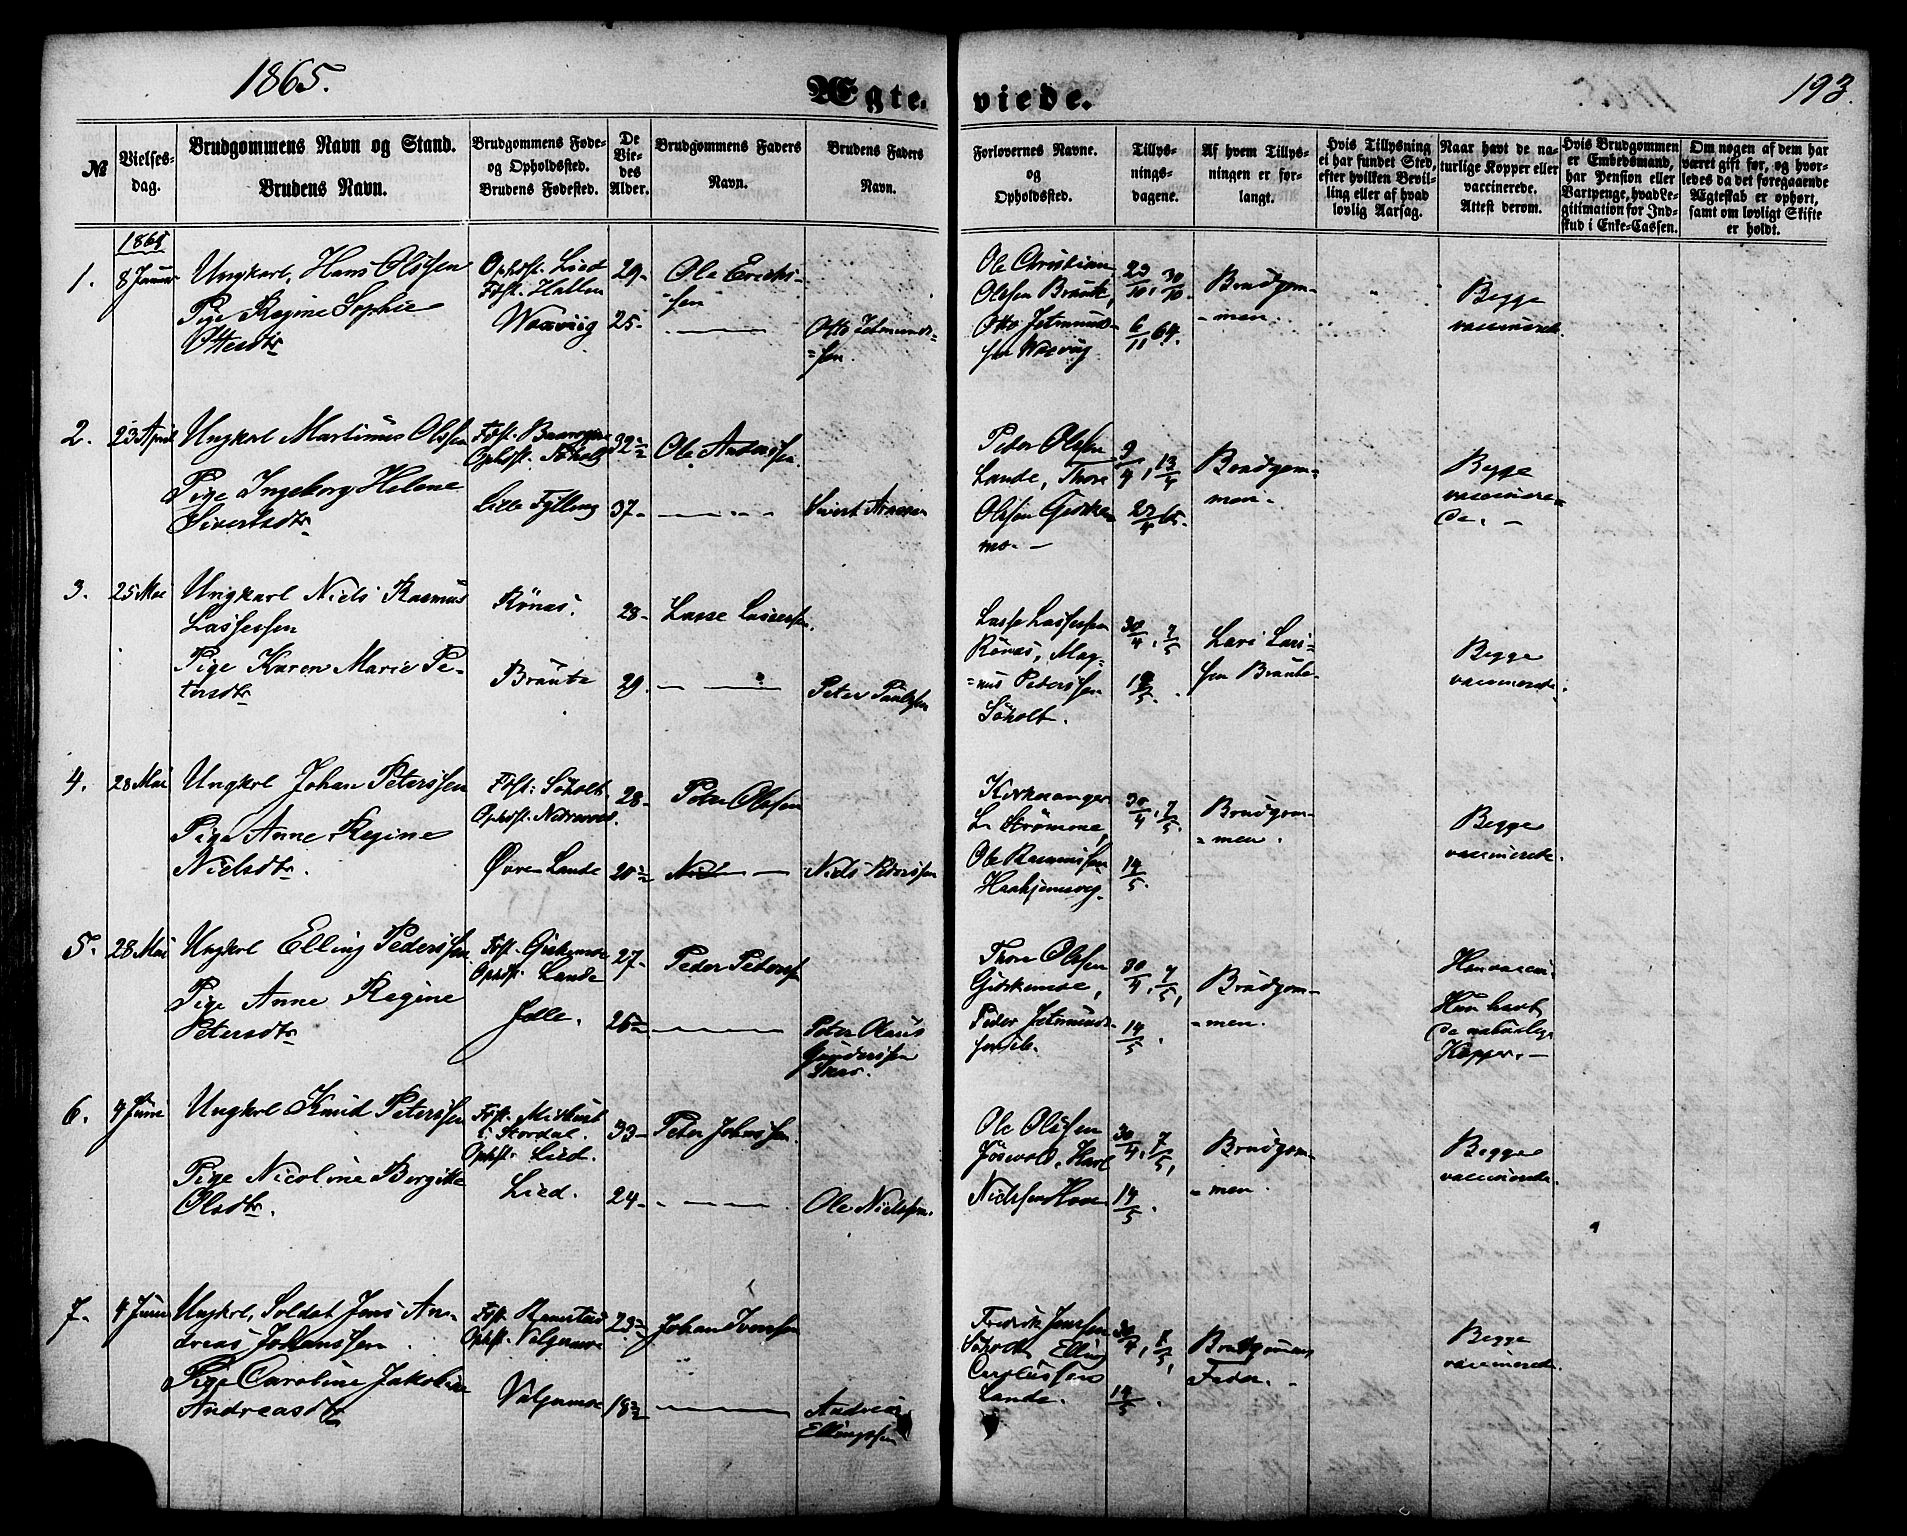 1865.
Ægte-
viede.
193.
№
Vielses-
dag.
Brudgommens Navn og Stand.
Brudens Navn.
Brudgommens Føde-
og Opholdssted.
Brudens Fødested.
De
Vie-
des
Alder.
Brudgommens Faders
Navn.
Brudens Faders
Navn.
Forlovernes Navne.
og
Opholdssted.
Tillys-
nings-
dagene.
Af hvem Tillys-
ningen er for-
langt.
Hvis Tillysning
ei har fundet Sted,
efter hvilken Bevil-
ling eller af hvad
lovlig Aarsag.
Naar havt de na-
turlige Kopper eller
vaccinerede.
Attest derom.
Hvis Brudgommen
er Embedsmand,
har Pension eller
Vartpenge, hvad Le-
gitimation for Ind-
skud i Enke-Cassen.
Om nogen af dem har
været gift før, og hvor-
ledes da det foregaaende
Ægteskab er ophørt,
samt om lovligt Skifte
er holdt.
1865
1. 8 Januar
Ungkarl, Hans Olssen
Pige Regine Sophie
Ottesdtr
Ophdst. Lied
Fdst. Hatlen
Waxviig
29-
25-
Ole Erichs-
sen
Otto Jetmund-
sen
Ole Christian
Olssen Braute,
Otto Jetmund-
sen Waxviig
23/10, 30/10.
6/11 64.
Brudgom-
men.
Begge
vaccinerede.
2. 23 April
Ungkarl Martinus Olssen
Pige Ingeborg Helene
Sivertsdtr
Ophdst. Søholt
Lille Fylling
32½
37-
Ole Anderssen.
Sivert
Peder Olssen
Lande, Thore
Olssen Giskemo
mo.
9/4, 13/4
23/4 65.
Brudgom-
men.
Begge
vaccinere-
de.
3. 25 Mai
Ungkarl Niels Rasmus
Lassessen
Pige Karen Marie Pe-
tersdtr
Rønæs.
Braute
28-
29.
Lasse Lassessen.
Peter Paulssen
Lasse Lassessen
Rønæs, Mag-
nus Pederssen
Søholt.
30/4, 7/5
Lars Lars-
sen Braute.
Begge
vaccinerede.
4. 28 Mai
Ungkrl Johan Peterssen
Pige Anne Regine
Nielsdtr.
Fdst. Søholt
Ophdst.
Øvre Lande
28-
20½
Peter Olssen
Niels Pederssen
Kirkesanger
L. Strømme,
Ole Rasmussen
30/4, 7/5.
14/5.
Brudgom-
men.
Begge
vaccinerede.
5. 28 Mai
Ungkrl Elling Pederssen
Pige Anne Regine
Petersdtr
Fdst. Giskemo
Ophdst. Lande
27-
26½
Peder Peterss
Peter Olaus
Gunderssen
Thore Olssen
Giskemoe,
Peder Jetmund-
30/4, 7/5,
14/5.
Brudgom-
men.
Han vaccin.
Hun havt
de naturlige
Kopper.
6. 4 Juni
Ungkrl Knud Peterssen
Pige Nicoline Bergitte
Olsdtr.
i Stordal.
Ophst. Lied.
Lied.
33-
24-
Peter Johnssen.
Ole Nielssen.
Ole Olssen
Karl
Nielssen
30/4, 7/5,
14/5.
Brudgom-
men.
Begge
vaccinerede.
7. 4 Juni
Ungkrl, Soldat Jens An-
dreas Johanssen
Pige Caroline Jakobine
Andreasdtr
Fdst. Ramstad
Ophst. Valgermoe
Valgermoe
23½
18½
Johan Iverssen
Andreas
Ellingssen
Fredrik Jenssen
Søholt, Elling
Lande.
30/4,
14/5.
Brudgommens
Fader.
Begge
vaccinerede.